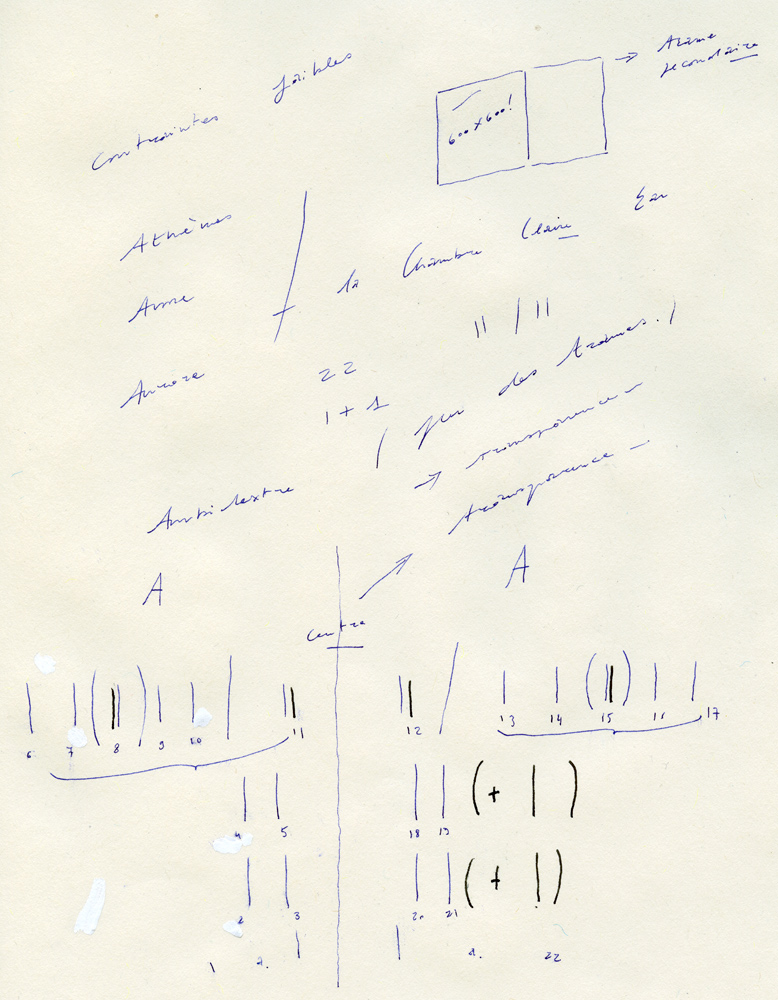 Contraintes faibles
→ Trame
secondaire
600 x 600!
Athènes
Ame
la Chambre Claire
Aurore
22
1 + 1
( jeu des trames. )
→ transparence -
transparence -
A
A
Centre
6 7 ( 8 ) 9 10 11
12 13 14 ( 15 ) 16 17
4 5
18 19 ( + | )
2 3
20 21 ( + | )
1 a.
a. 22